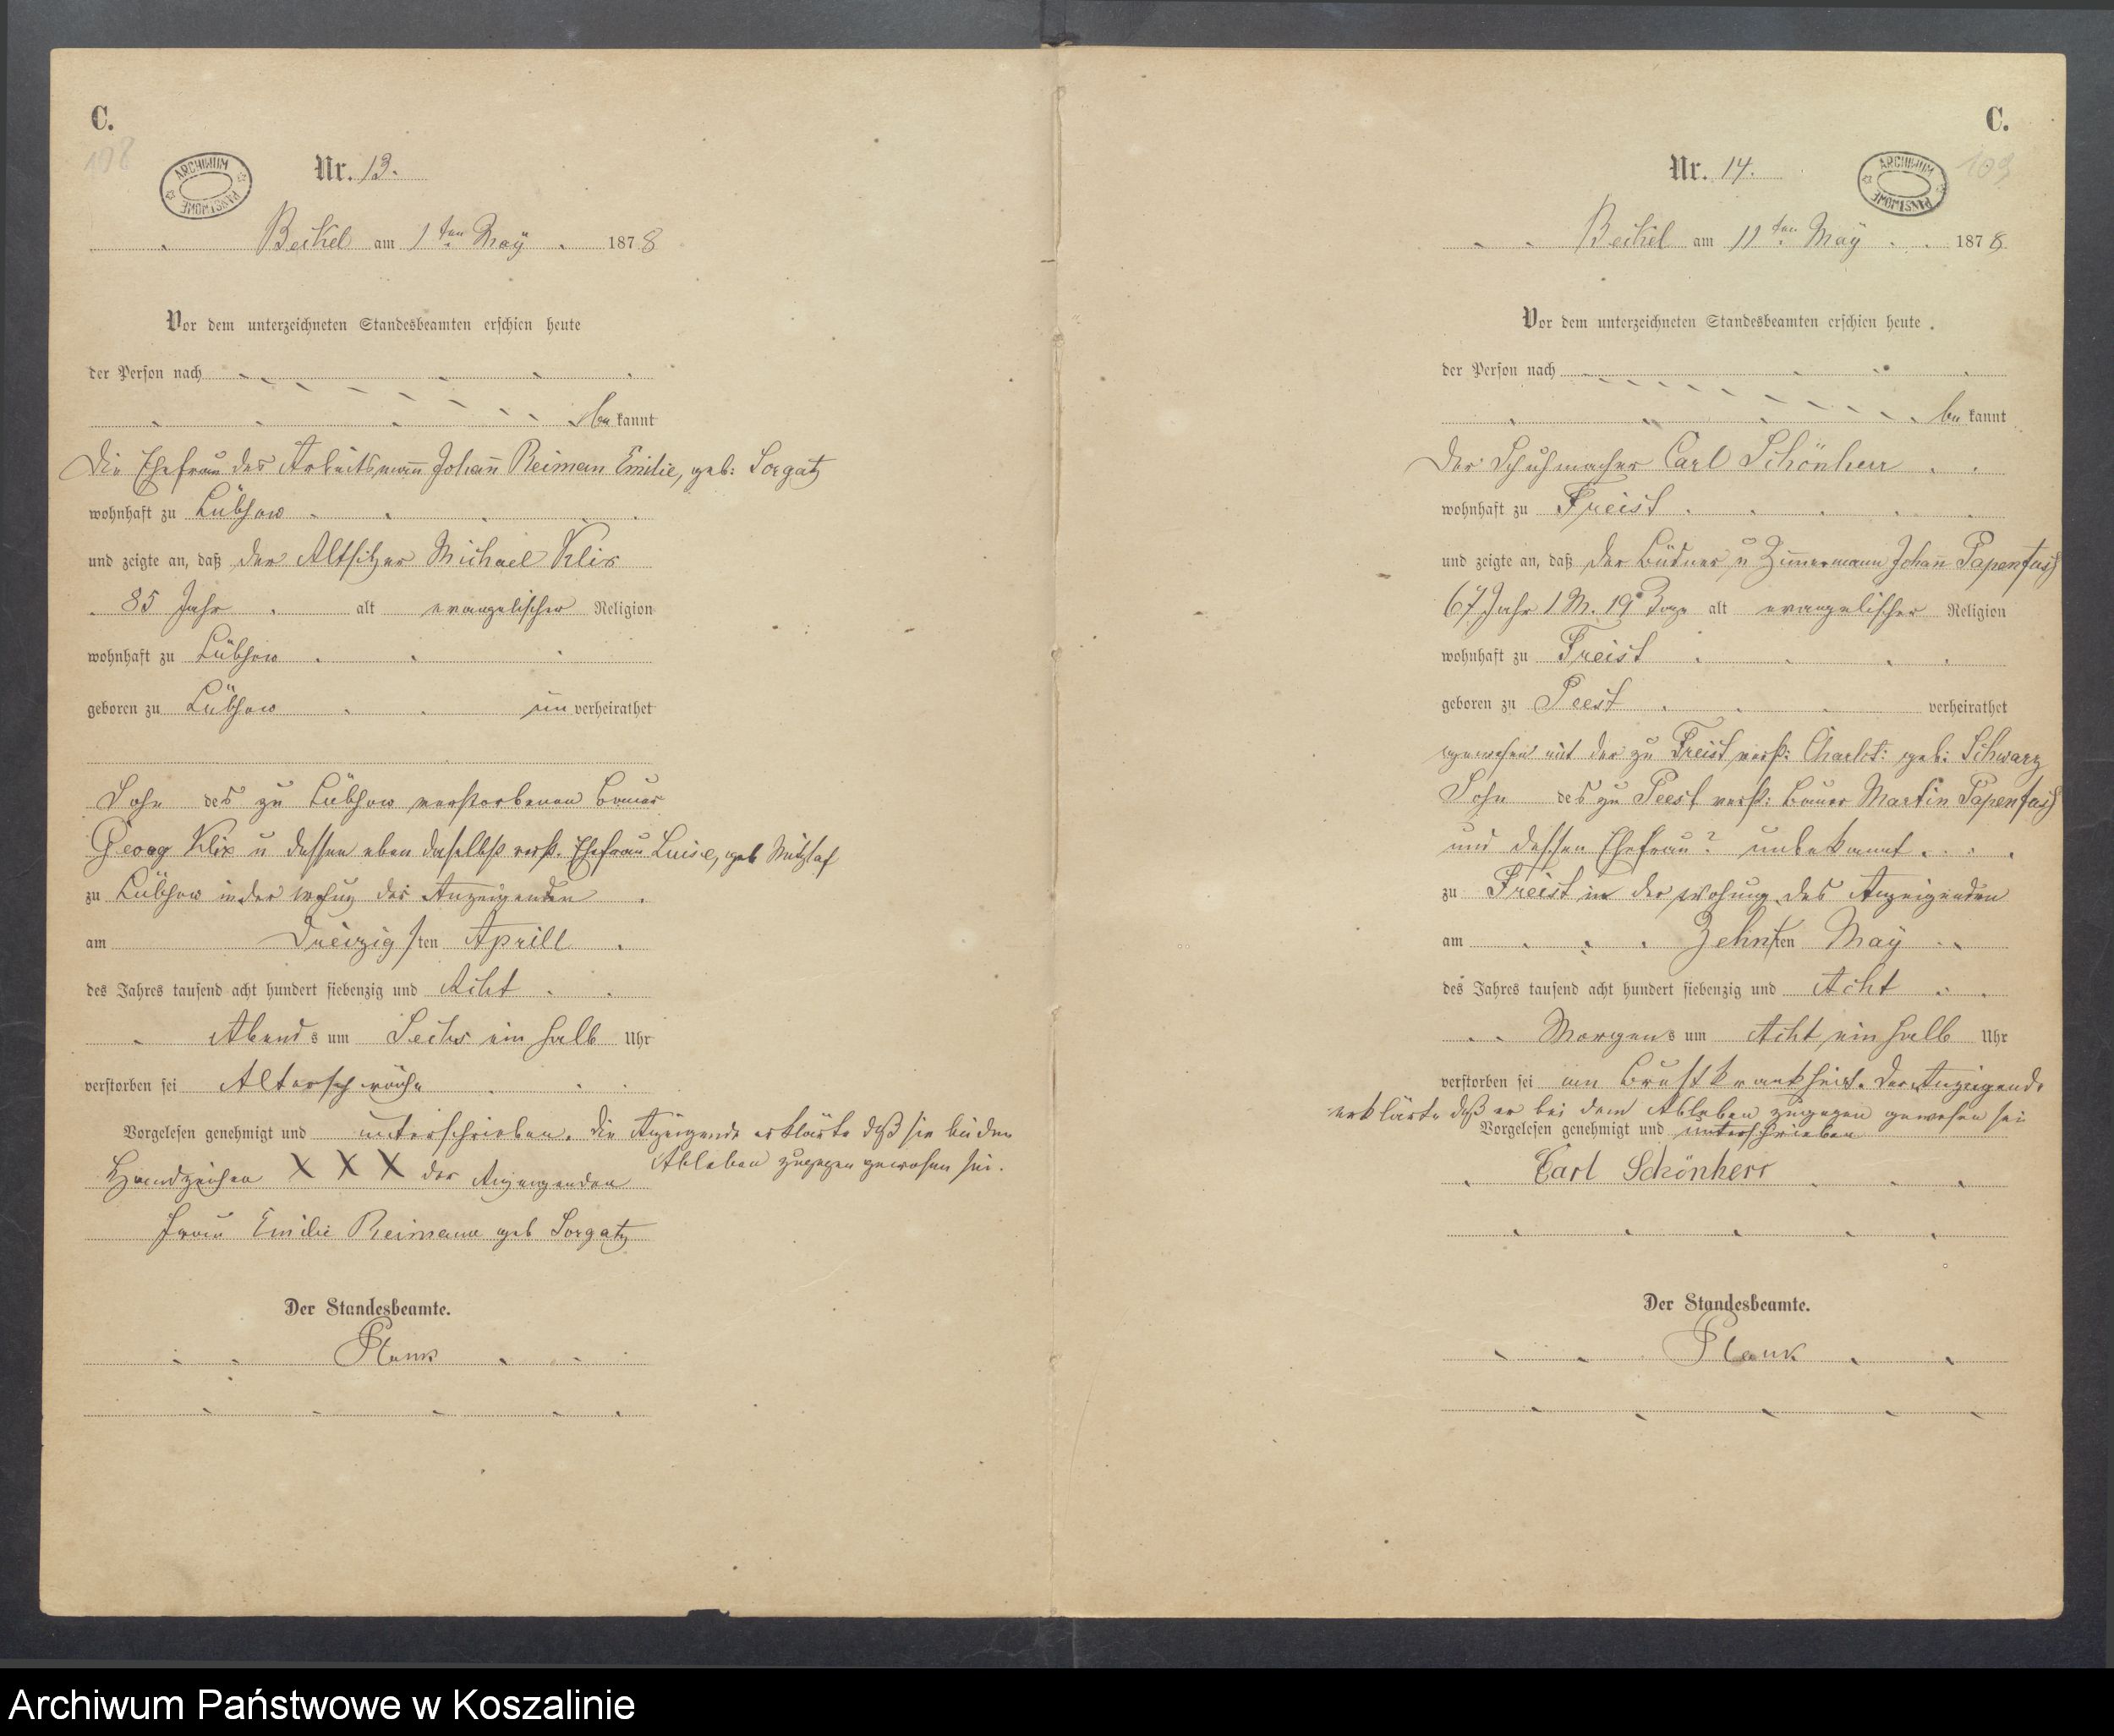 C.
108
ARCHIWUM PAŃSTWOWE
Nr. 13.
Beckel am 1ten Maÿ 1878
Vor dem unterzeichneten Standesbeamten erschien heute
der Person nach
bekannt
Die Ehefrau des Arbeitsmañ Johañ Reiman Emilie, geb: Sorgatz
wohnhaft zu Lübzow
und zeigte an, daß der Altsitzer Michael Klix
85 Jahr alt evangelischer Religion
wohnhaft zu Lübzow
geboren zu Lübzow unverheirathet
Sohn des zu Lübzow verstorbenen Bauer
Georg Klix u dessen eben daselbst verst. Ehefrau Luise, geb
zu Lübzow in der des Anzeigenden
am Dreizigsten Aprill
des Jahres tausend acht hundert siebenzig und Acht
Abends um Sechs ein halb Uhr
verstorben sei Altersschwäche
Vorgelesen genehmigt und unterschrieben. die Anzeigende erklärte daß sie bei dem
Ableben zugegen gewesen sei.
Handzeichen X X X der Anzeigenden
Frau Emilie Reimann geb Sorgatz
Der Standesbeamte.
Plank
C.
109
ARCHIWUM PAŃSTWOWE
Nr. 14.
Beckel am 11ten Maÿ 1878
Vor dem unterzeichneten Standesbeamten erschien heute
der Person nach
bekannt
Der Schuhmacher Carl Schönherr
wohnhaft zu Freist
und zeigte an, daß der Büdner u Zim̃ermann Johañ Papenfusß
67 Jahr 1 M. 19 Tage alt evangelischer Religion
wohnhaft zu Freist
geboren zu Peest verheirathet
gewesen mit der zu Freist verst: Charlot: geb: Schwarz
Sohn des zu Peest verst: Bauer Martin Papenfusß
und dessen Ehefrau? unbekannt
zu Freist in der Wohung des Anzeigenden
am Zehnten Maÿ
des Jahres tausend acht hundert siebenzig und Acht
Morgens um Acht ein halb Uhr
verstorben sei an Brustkrankheit. Der Anzeigende
erklärte daß er bei dem Ableben zugegen gewesen sei
Vorgelesen genehmigt und unterschrieben
Carl Schönherr
Der Standesbeamte.
Plank
Archiwum Państwowe w Koszalinie